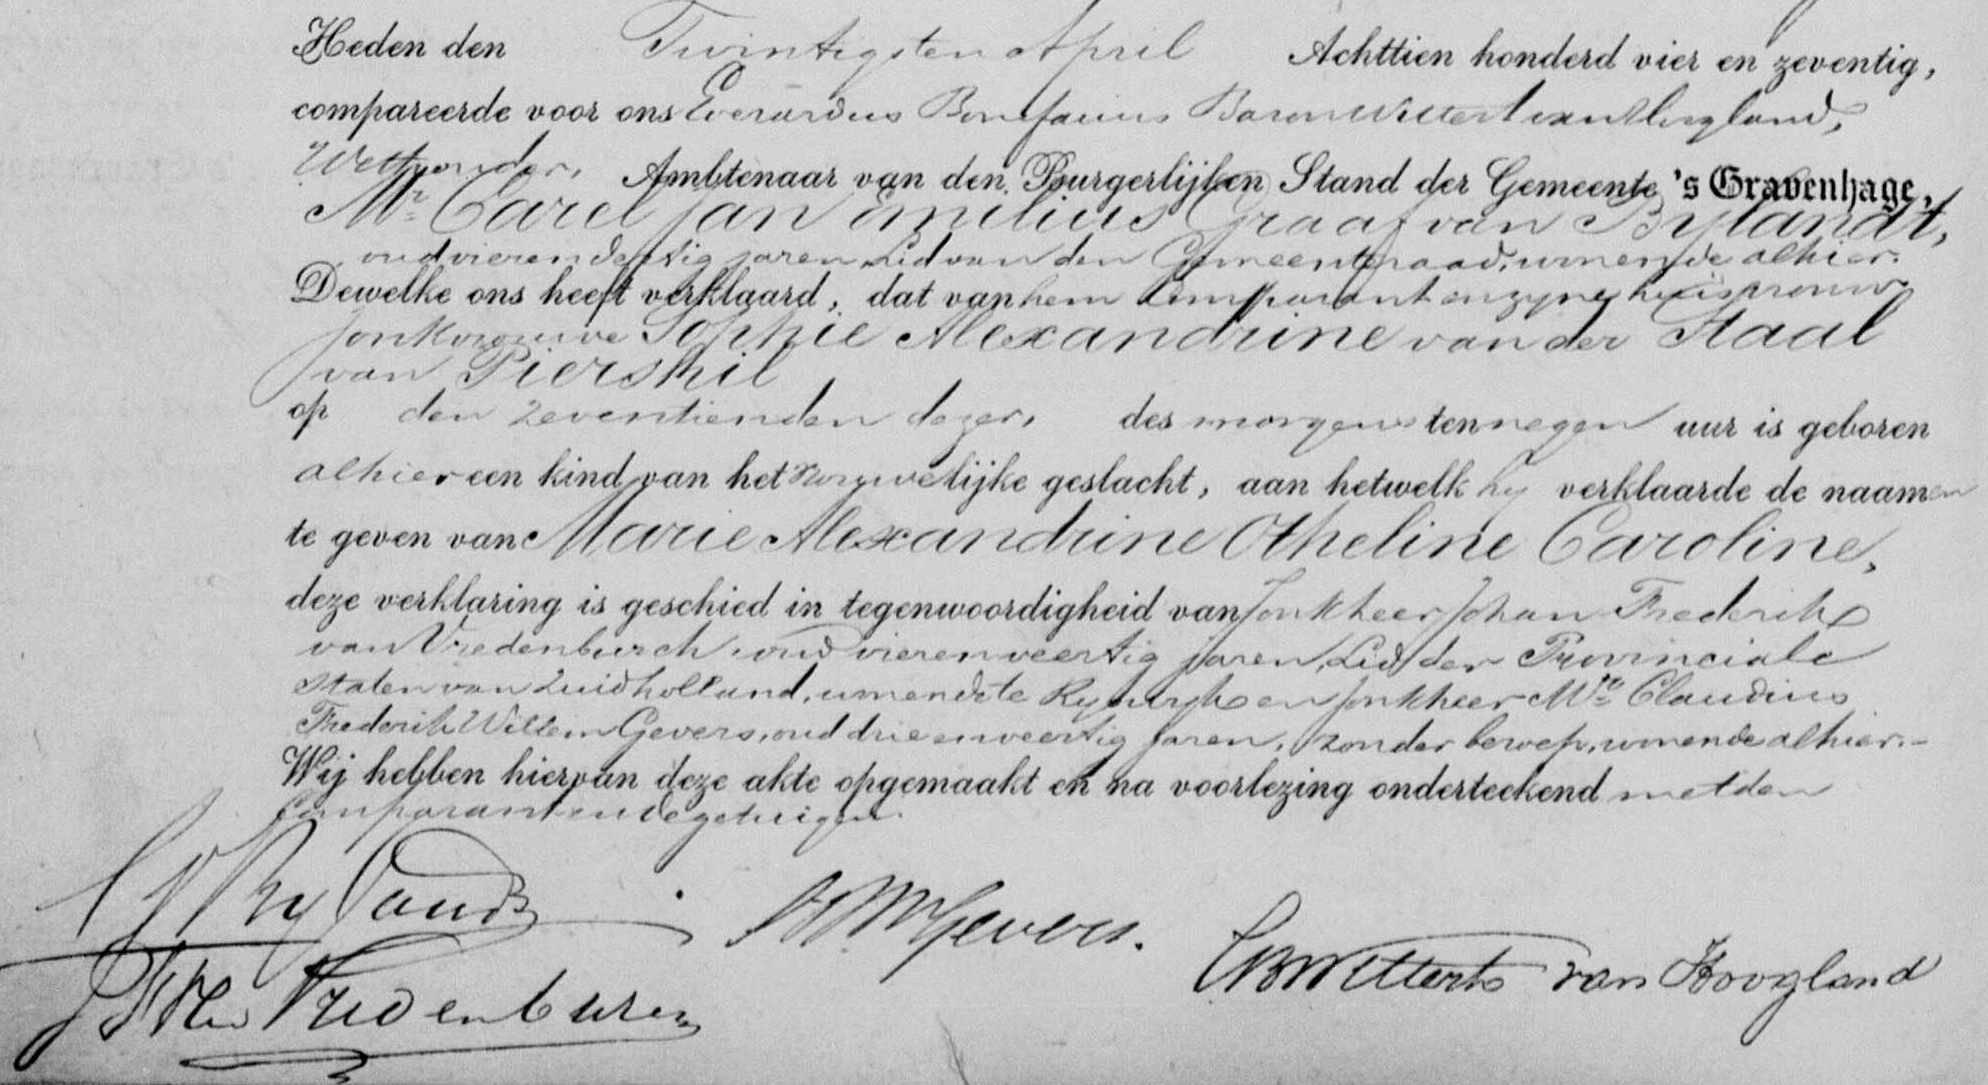 Heden den Twintigsten April Achttien honderd vier en zeventig,
compareerde voor ons Everardus Bonifacius Baron Wittert van Hoogland,
Wethouder, Ambtenaar van den Burgerlijken Stand der Gemeente 's Gravenhage,
Mr. Carel Jan Emilius Graaf van Bylandt,
oud vierendertig jaren, Lid van den Gemeenteraad, wonende alhier.
Dewelke ons heeft verklaard, dat van hem Comparant en zyne huisvrouw
Jonkvrouwe Sophie Alexandrine van der Staal
van Piershil
op den zeventienden dezer, des morgens ten negen uur is geboren
alhier een kind van het vrouwelijke geslacht, aan hetwelk hy verklaarde de naamen
te geven van Marie Alexandrine Otheline Caroline,
deze verklaring is geschied in tegenwoordigheid van Jonkheer Johan Frederik
van Vredenburch, oud vierenveertig jaren, Lid der Provinciale
Staten van Zuidholland, wonende te Ryswyk en Jonkheer Mr. Claudius
Frederik Willem Gevers, oud drieenveertig jaren, zonder beroep, wonende alhier.-
Wij hebben hiervan deze akte opgemaakt en na voorlezing onderteekend met den
Comparant en de getuigen.
Bylandt
Gevers.
Wittert van Hoogland
Vredenburch